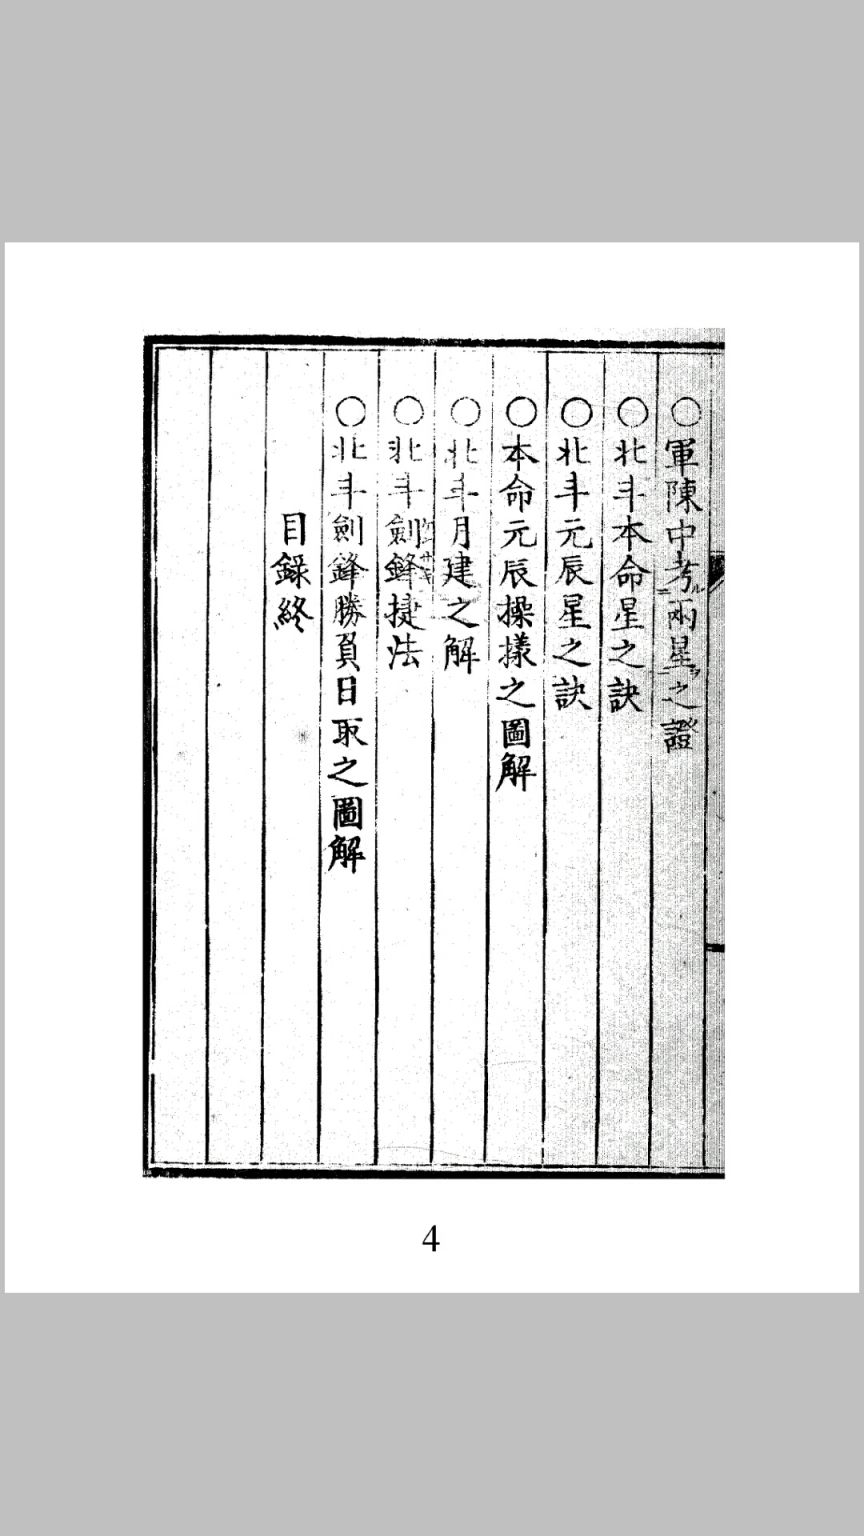 ○軍陳中考ルニ兩星ヲ之證
○北斗本命星之訣
○北斗元辰星之訣
本命元辰操㨾之圖解
○北斗月建之解
○北斗劍鋒捷法
○北斗劍鋒勝負日取之圖解
目録終
4